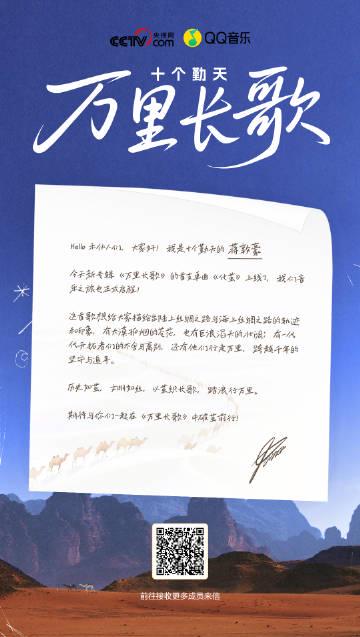 CCTV.com 央视网 QQ音乐
十个勤天
万里长歌
Hello 禾伙人们，大家好！我是十个勤天的 蒋敦豪
今天新专辑《万里长歌》的首支单曲《化茧》上线了，我们音
乐之旅也正式启程！
这首歌想给大家描绘出陆上丝绸之路与海上丝绸之路的轨迹
和印象，有大漠孤烟的苍茫，也有巨浪滔天的
代开拓者们的不舍与离别，还有他们行走万里，跨越千年的
坚守与追寻。
历史如茧，
期待与你们一起在《万里长歌》中破茧前行！
前往接收更多成员来信